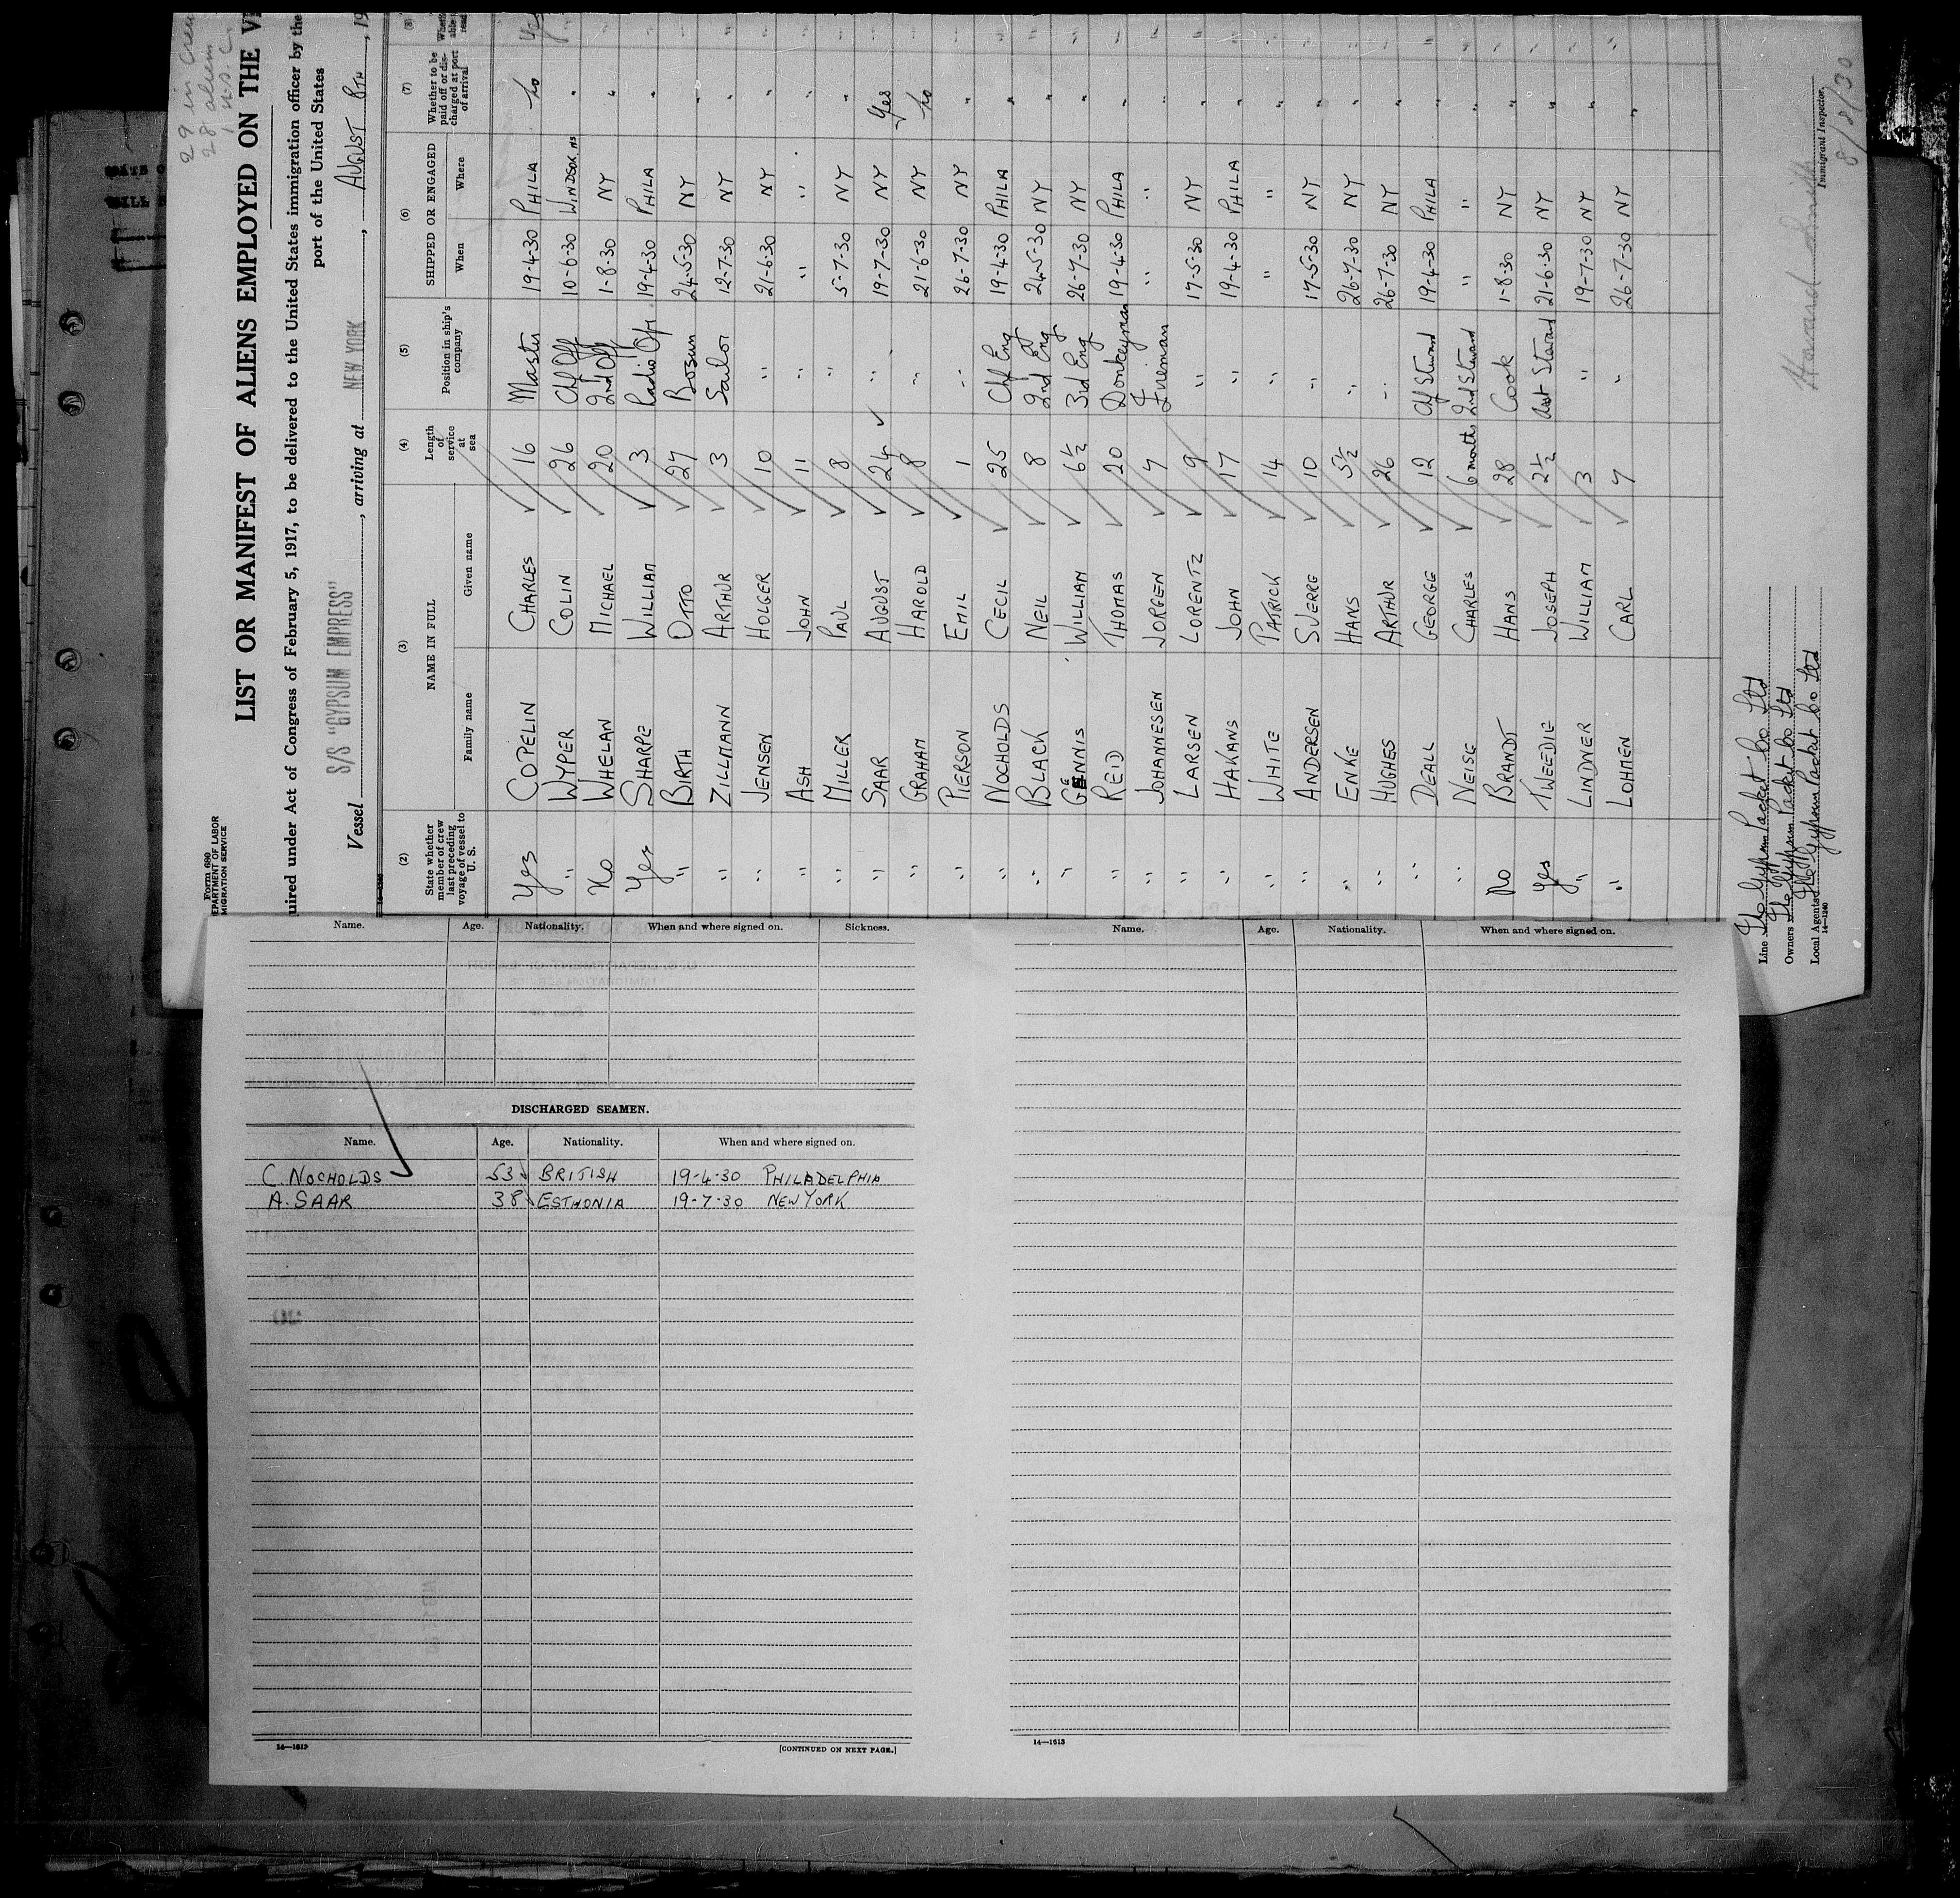 29 in Crew
28 aliens
1 U.S.C.
Form 680
DEPARTMENT OF LABOR
IMMIGRATION SERVICE
LIST OR MANIFEST OF ALIENS EMPLOYED ON THE
uired under Act of Congress of February 5, 1917, to be delivered to the United States immigration officer by the
port of the United States
Vessel S/S "GYPSUM EMPRESS", arriving at NEW YORK, AUGUST 8TH, 19
(2) (3) (4) (5) (6) (7) (8)
State whether member of crew last preceding voyage of vessel to U. S. NAME IN FULL Family name Given name Length of service at sea Position in ship's company SHIPPED OR ENGAGED When Where Whether to be paid off or discharged at port of arrival
Yes COPELIN CHARLES 16 Master 19-4-30 PHILA No
" WYPER COLIN 26 Chf Off 10-6-30 WINDSOR, NS "
No WHELAN MICHAEL 20 2nd Off 1-8-30 NY "
Yes SHARPE WILLIAM 3 Radio Opr 19-4-30 PHILA "
" BIRTH OTTO 27 Bosun 24-5-30 NY "
" ZILLMANN ARTHUR 3 Sailor 12-7-30 NY "
" JENSEN HOLGER 10 " 21-6-30 NY "
" ASH JOHN 11 " " " "
" MILLER PAUL 8 " 5-7-30 NY "
" SAAR AUGUST 24 " 19-7-30 NY Yes
" GRAHAM HAROLD 8 " 21-6-30 NY No
" PIERSON EMIL 1 " 26-7-30 NY "
" NOCHOLDS CECIL 25 Chf Eng 19-4-30 PHILA "
" BLACK NEIL 8 2nd Eng 24-5-30 NY "
" GENNIS WILLIAM 6½ 3rd Eng 26-7-30 NY "
" REID THOMAS 20 Donkeyman 19-4-30 PHILA "
" JOHANNESEN JORGEN 7 Fireman " " "
" LARSEN LORENTZ 9 " 17-5-30 NY "
" HAKANS JOHN 17 " 19-4-30 PHILA "
" WHITE PATRICK 14 " " " "
" ANDERSEN SVERRE 10 " 17-5-30 NY "
" ENKE HANS 5½ " 26-7-30 NY "
" HUGHES ARTHUR 26 " 26-7-30 NY "
" DEALL GEORGE 12 Chf Steward 19-4-30 PHILA "
" NEISE CHARLES 6 months 2nd Steward " " "
No BRANDT HANS 28 Cook 1-8-30 NY "
Yes TWEEDIE JOSEPH 2½ Asst Steward 21-6-30 NY "
" LINDNER WILLIAM 3 " 19-7-30 NY "
" LOHMEN CARL 7 " 26-7-30 NY "
Line The Gypsum Packet Co Ltd
Owners The Gypsum Packet Co Ltd
Local Agents The Gypsum Packet Co Ltd
14—1240
Immigrant Inspector.
8/8/30
Name. Age. Nationality. When and where signed on. Sickness.
DISCHARGED SEAMEN.
Name. Age. Nationality. When and where signed on.
C. NOCHOLDS 53 BRITISH 19-4-30 PHILADELPHIA
A. SAAR 38 ESTHONIA 19-7-30 NEW YORK
14—1613
[CONTINUED ON NEXT PAGE.]
Name. Age. Nationality. When and where signed on.
14—1613